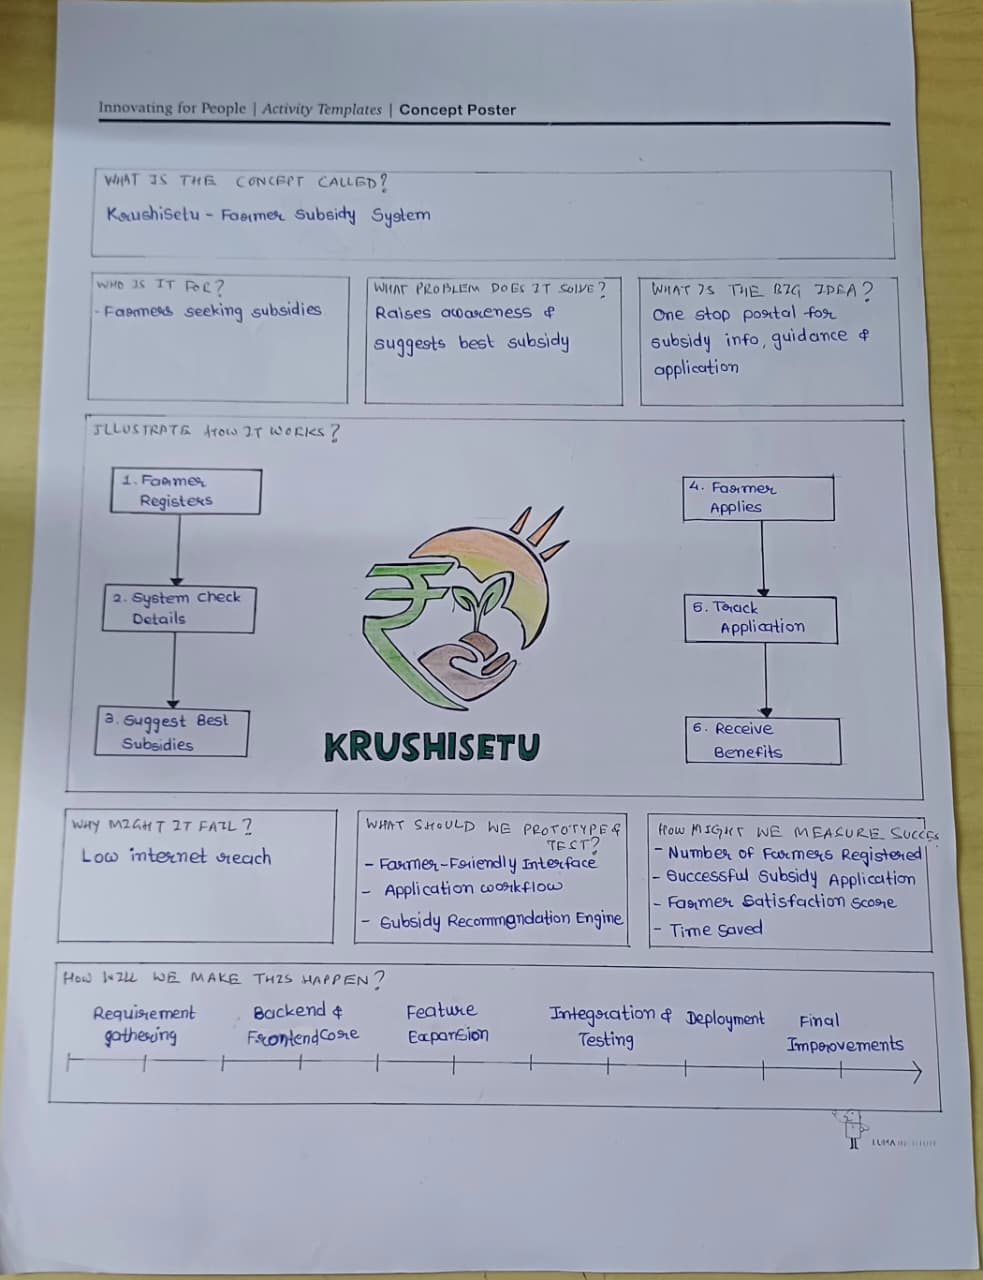 Innovating for People | Activity Templates | Concept Poster
WHAT IS THE CONCEPT CALLED?
KrushiSetu - Farmer Subsidy System
WHO IS IT FOR?
- Farmers seeking subsidies
WHAT PROBLEM DOES IT SOLVE?
Raises awareness &
suggests best subsidy
WHAT IS THE BIG IDEA?
One stop portal for
subsidy info, guidance &
application
ILLUSTRATE HOW IT WORKS?
1. Farmer
Registers
2. System Check
Details
3. Suggest Best
Subsidies
KRUSHISETU
4. Farmer
Applies
5. Track
Application
6. Receive
Benefits
WHY MIGHT IT FAIL?
Low internet reach
WHAT SHOULD WE PROTOTYPE &
TEST?
- Farmer-Friendly Interface
- Application workflow
- Subsidy Recommendation Engine
HOW MIGHT WE MEASURE SUCCES
- Number of Farmers Registered
- Successful Subsidy Application
- Farmer Satisfaction Score
- Time Saved
HOW WILL WE MAKE THIS HAPPEN?
Requirement
gathering
Backend &
Frontend Core
Feature
Expansion
Integration &
Testing
Deployment
Final
Improvements
LUMA